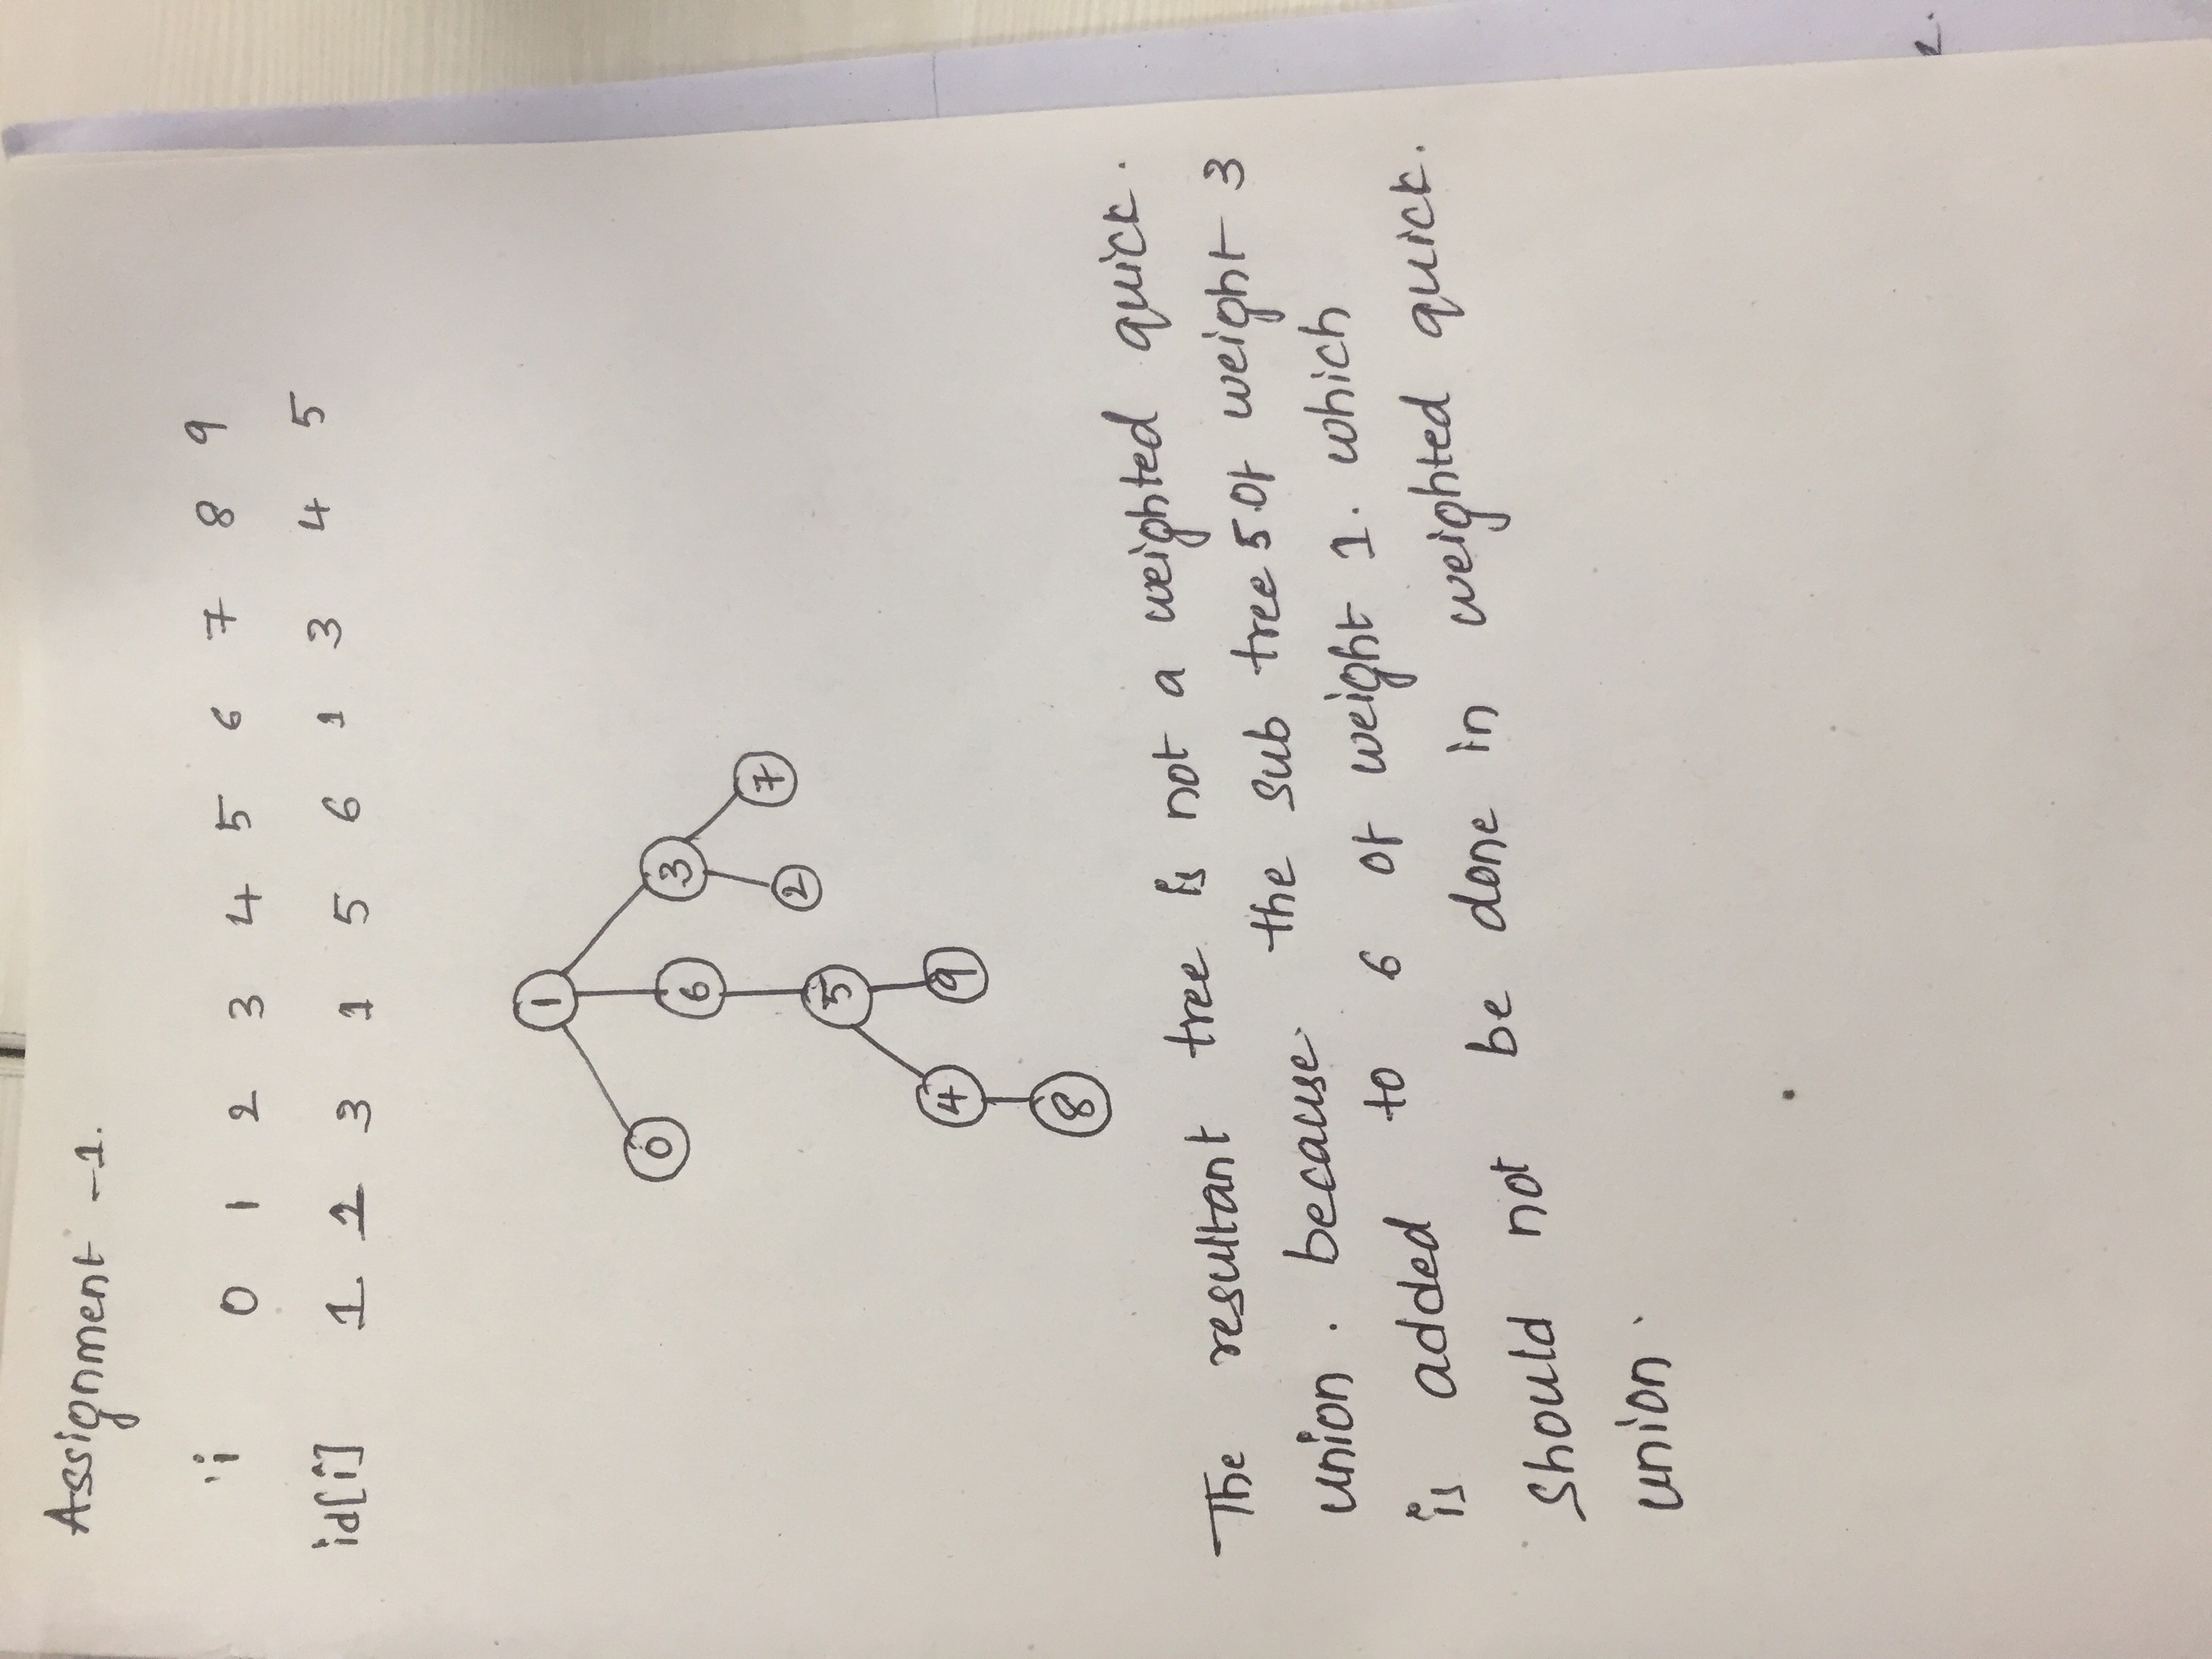 Assignment -1.
i 0 1 2 3 4 5 6 7 8 9
id[i] 1 1 3 1 5 6 1 3 4 5
1
0 6 3
2 7
5
4 9
8
The resultant tree is not a weighted quick.
union. because. the sub tree 5 of weight 3
is added to 6 of weight 1. which
should not be done in weighted quick.
union.